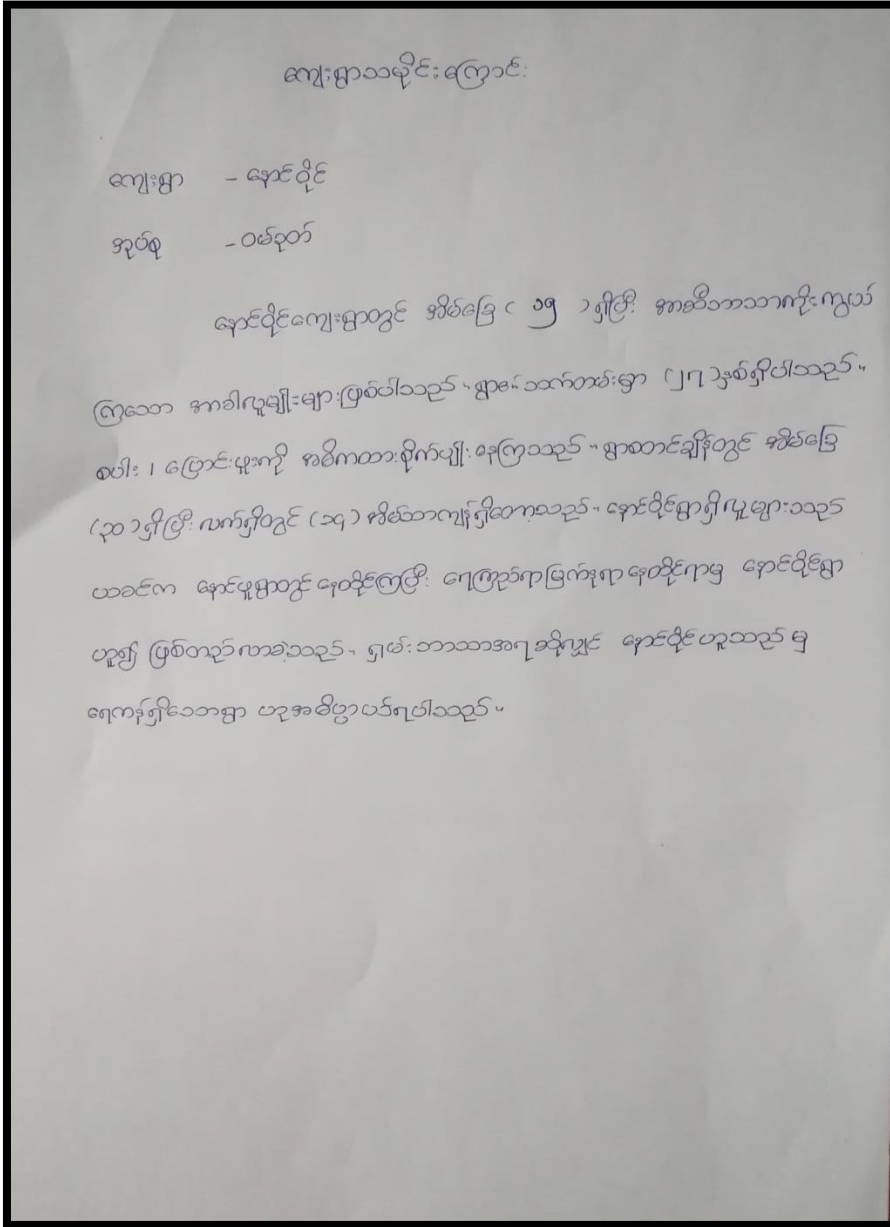 ကျေးရွာသမိုင်းကြောင်း
ကျေးရွာ - နောင်ဝိုင်
အုပ်စု - ဝမ်ဒုတ်
နောင်ဝိုင်ကျေးရွာတွင် အိမ်ခြေ ( ၁၅ ) ရှိပြီး အာဆီဘာသာကိုးကွယ်
ကြသော အာခါလူမျိုးများဖြစ်ပါသည်။ ရွာ၏ သက်တမ်းမှာ (၂၇) နှစ်ရှိပါသည်။
စပါး ၊ ပြောင်းဖူးကို အဓိကထားစိုက်ပျိုးနေကြသည်။ ရွာစတင်ချိန်တွင် အိမ်ခြေ
(၃၀) ရှိပြီး လက်ရှိတွင် (၁၅) အိမ်သာကျန်ရှိတော့သည်။ နောင်ဝိုင်ရွာရှိလူများသည်
ယခင်က နောင်ယူရွာတွင် နေထိုင်ကြပြီး ရေကြည်ရာမြက်နုရာ နေထိုင်ရာမှ နောင်ဝိုင်ရွာ
ဟူ၍ ဖြစ်တည်လာခဲ့သည်။ ရှမ်းဘာသာအရ ဆိုလျှင် နောင်ဝိုင်ဟူသည် မှ
ရေကန်ရှိသောရွာ ဟုအဓိပ္ပာယ်ရပါသည်။